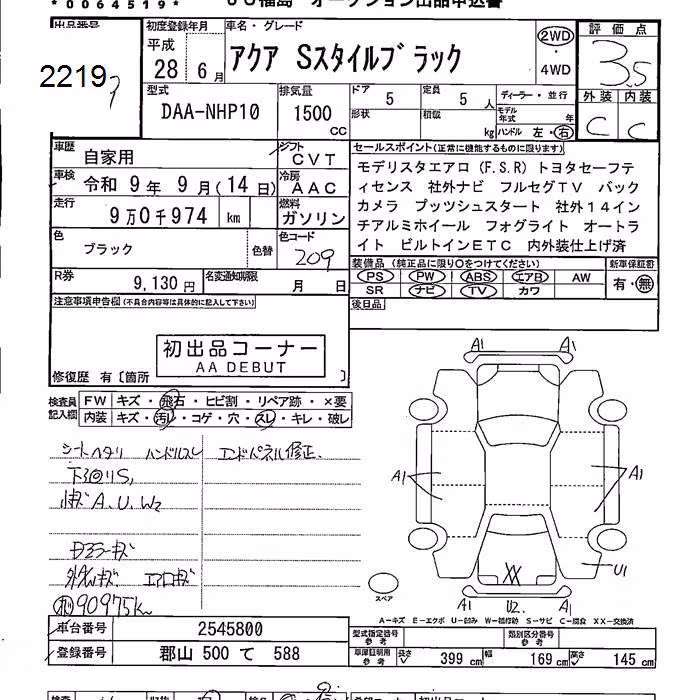 *0064519*
出品番号
2219
初度登録年月
平成
28年 6月
車名・グレード
アクア Sスタイルブラック
2WD
・
4WD
評価点
3.5
外装 内装
C C
型式
DAA-NHP10
排気量
1500
CC
ドア 5
定員 5人
形状
積載 kg
ディーラー・並行
モデル年式 年
ハンドル 左・右
車歴
自家用
シフト
CVT
車検
令和 9年 9月(14日)
冷房
AAC
走行
9万0千974 km
燃料
ガソリン
色
ブラック
色替
色コード
209
R券
9,130円
名変通知期限
月 日
セールスポイント(正常に機能するものに限ります)
モデリスタエアロ(F.S.R)トヨタセーフテ
ィセンス 社外ナビ フルセグTV バック
カメラ プッツシュスタート 社外14イン
チアルミホイール フォグライト オートラ
イト ビルトインETC 内外装仕上げ済
装備品(純正品に限り○をつけてください)
新車保証書
PS PW ABS エアB AW
SR ナビ TV カワ
有・無
後日品
注意事項申告欄(不具合内容等は具体的に記入して下さい)
初出品コーナー
AA DEBUT
修復歴 有〔箇所 〕
検査員
記入欄
FW キズ・飛石・ヒビ割・リペア跡・×要
内装 キズ・汚レ・コゲ・穴・スレ・キレ・破レ
シートヘタリ ハンドルスレ エンドパネル修正、
下回りS,
A.U.W2
エアロキズ
90975km
A1 A1
A1 A1
U1
XX
A1 U2. A1
スペア
A−キズ E−エクボ U−凹み W−補修跡 S−サビ C−腐食 XX−交換済
車台番号 2545800
登録番号 郡山 500 て 588
型式指定番号
参考
類別区分番号
参考
車庫証明用
参考
長さ 399 cm 幅 169 cm 高さ 145 cm